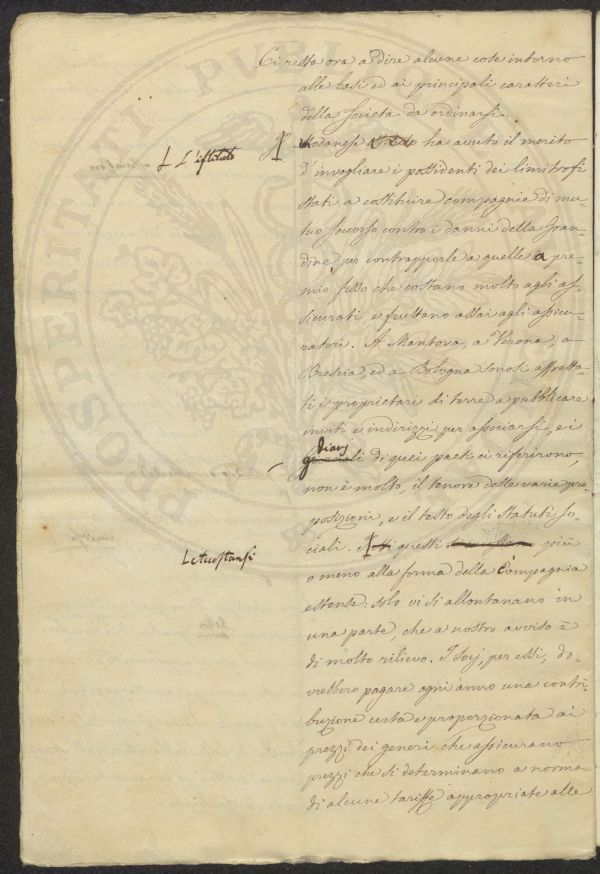 PROSPERITATI PUBLI
Ci resta ora a dire alcune cose intorno
alle basi ed ai principali caratteri
della Società da ordinarsi.
L'istituto
Modanese ha avuto il merito
d'invogliare i possidenti dei limitrofi
Stati a costituire compagnie di mu-
tuo soccorso contro i danni della gran-
dine, per contrapporle a quelle a pre-
mio fisso che costano molto agli as-
sicurati, e fruttano assai agli assicu-
ratori. A Mantova, a Verona, a
Brescia, ed a Bologna sonosi affretta-
ti i proprietari di terre a pubblicare
inviti e indirizzi per associarsi, e i
diarj
giornali di quei paesi ci riferirono,
non è molto, il tenore delle varie pro-
posizioni, e il testo degli Statuti so-
ciali.
Accostansi
questi più
o meno alla forma della Compagnia
estense: solo vi si allontanano in
una parte, che a nostro avviso è
di molto rilievo. I Socj, per essi, do-
vrebbero pagare ogni anno una contri-
buzione certa e proporzionata ai
prezzi dei generi che assicurano
prezzi che si determinano a norma
di alcune tariffe appropriate alle